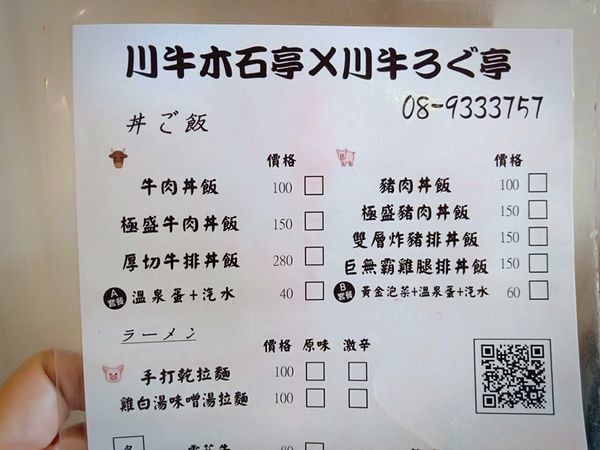 川牛木石亭X川牛ろぐ亭
08-9333757
丼ご飯
價格
牛肉丼飯 100
極盛牛肉丼飯 150
厚切牛排丼飯 280
A套餐 溫泉蛋+汽水 40
價格
豬肉丼飯 100
極盛豬肉丼飯 150
雙層炸豬排丼飯 150
巨無霸雞腿排丼飯 150
B套餐 黃金泡菜+溫泉蛋+汽水 60
ラーメン
價格 原味 激辛
手打乾拉麵 100
雞白湯味噌湯拉麵 100